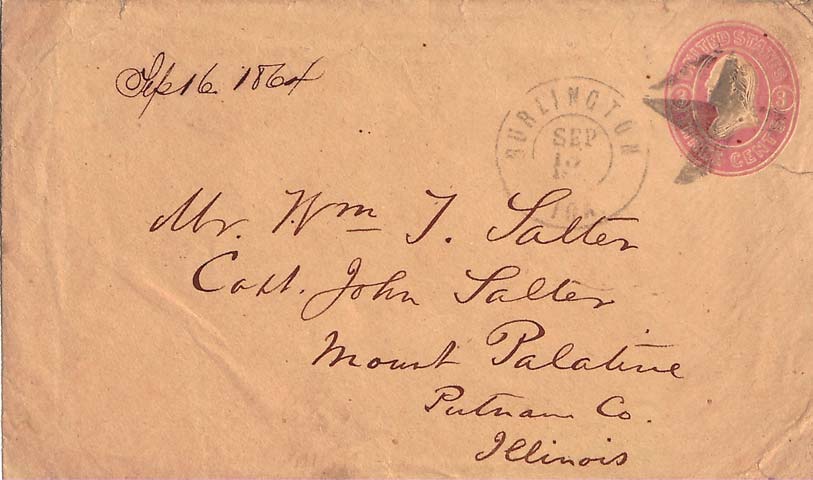 Sep 16 1864
BURLINGTON
SEP
IOA
UNITED STATES
3 3
THREE CENTS
Mr. Wm T. Salter
Capt. John Salter
Mount Palatine
Putnam Co.
Illinois